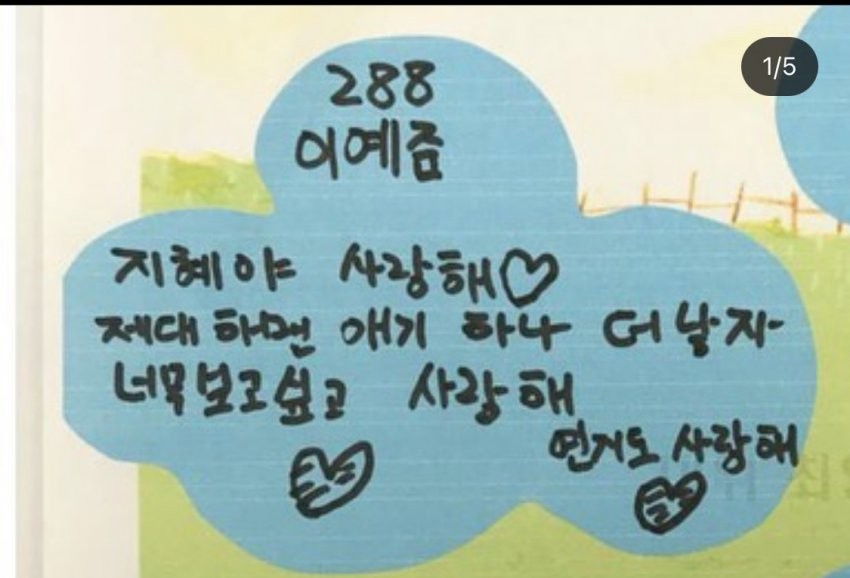 1/5
288
이예줌
지혜야 사랑해♡
제대하면 애기 하나 더 낳자
너무보고싶고 사랑해
연지도 사랑해